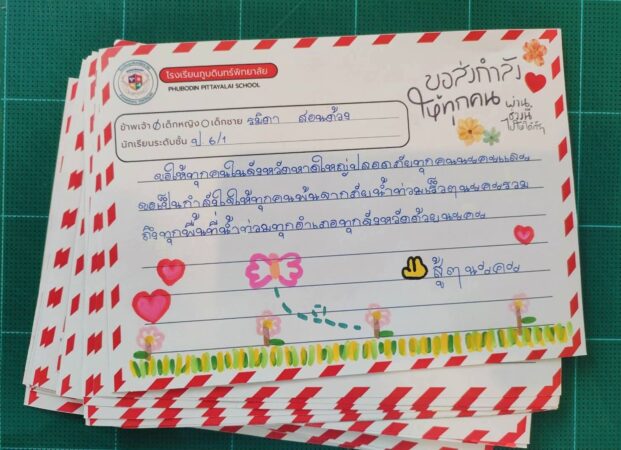 โรงเรียนภูบดินทร์พิทยาลัย
PHUBODIN PITTAYALAI SCHOOL
ขอส่งกำลัง
ให้ทุกคน
ผ่าน
ช่วงนี้
ไปให้ได้
ข้าพเจ้า เด็กหญิง เด็กชาย รมิตา สอนด้วง
นักเรียนระดับชั้น ป.6/1
ขอให้ทุกคนในจังหวัดหาดใหญ่ปลอดภัยทุกคนนะคะและ
ขอเป็นกำลังใจให้ทุกคนพ้นจากภัยน้ำท่วมเร็วๆนะคะรวม
ถึงทุกพื้นที่น้ำท่วมทุกอำเภอทุกจังหวัดด้วยนะคะ
สู้ๆนะคะ